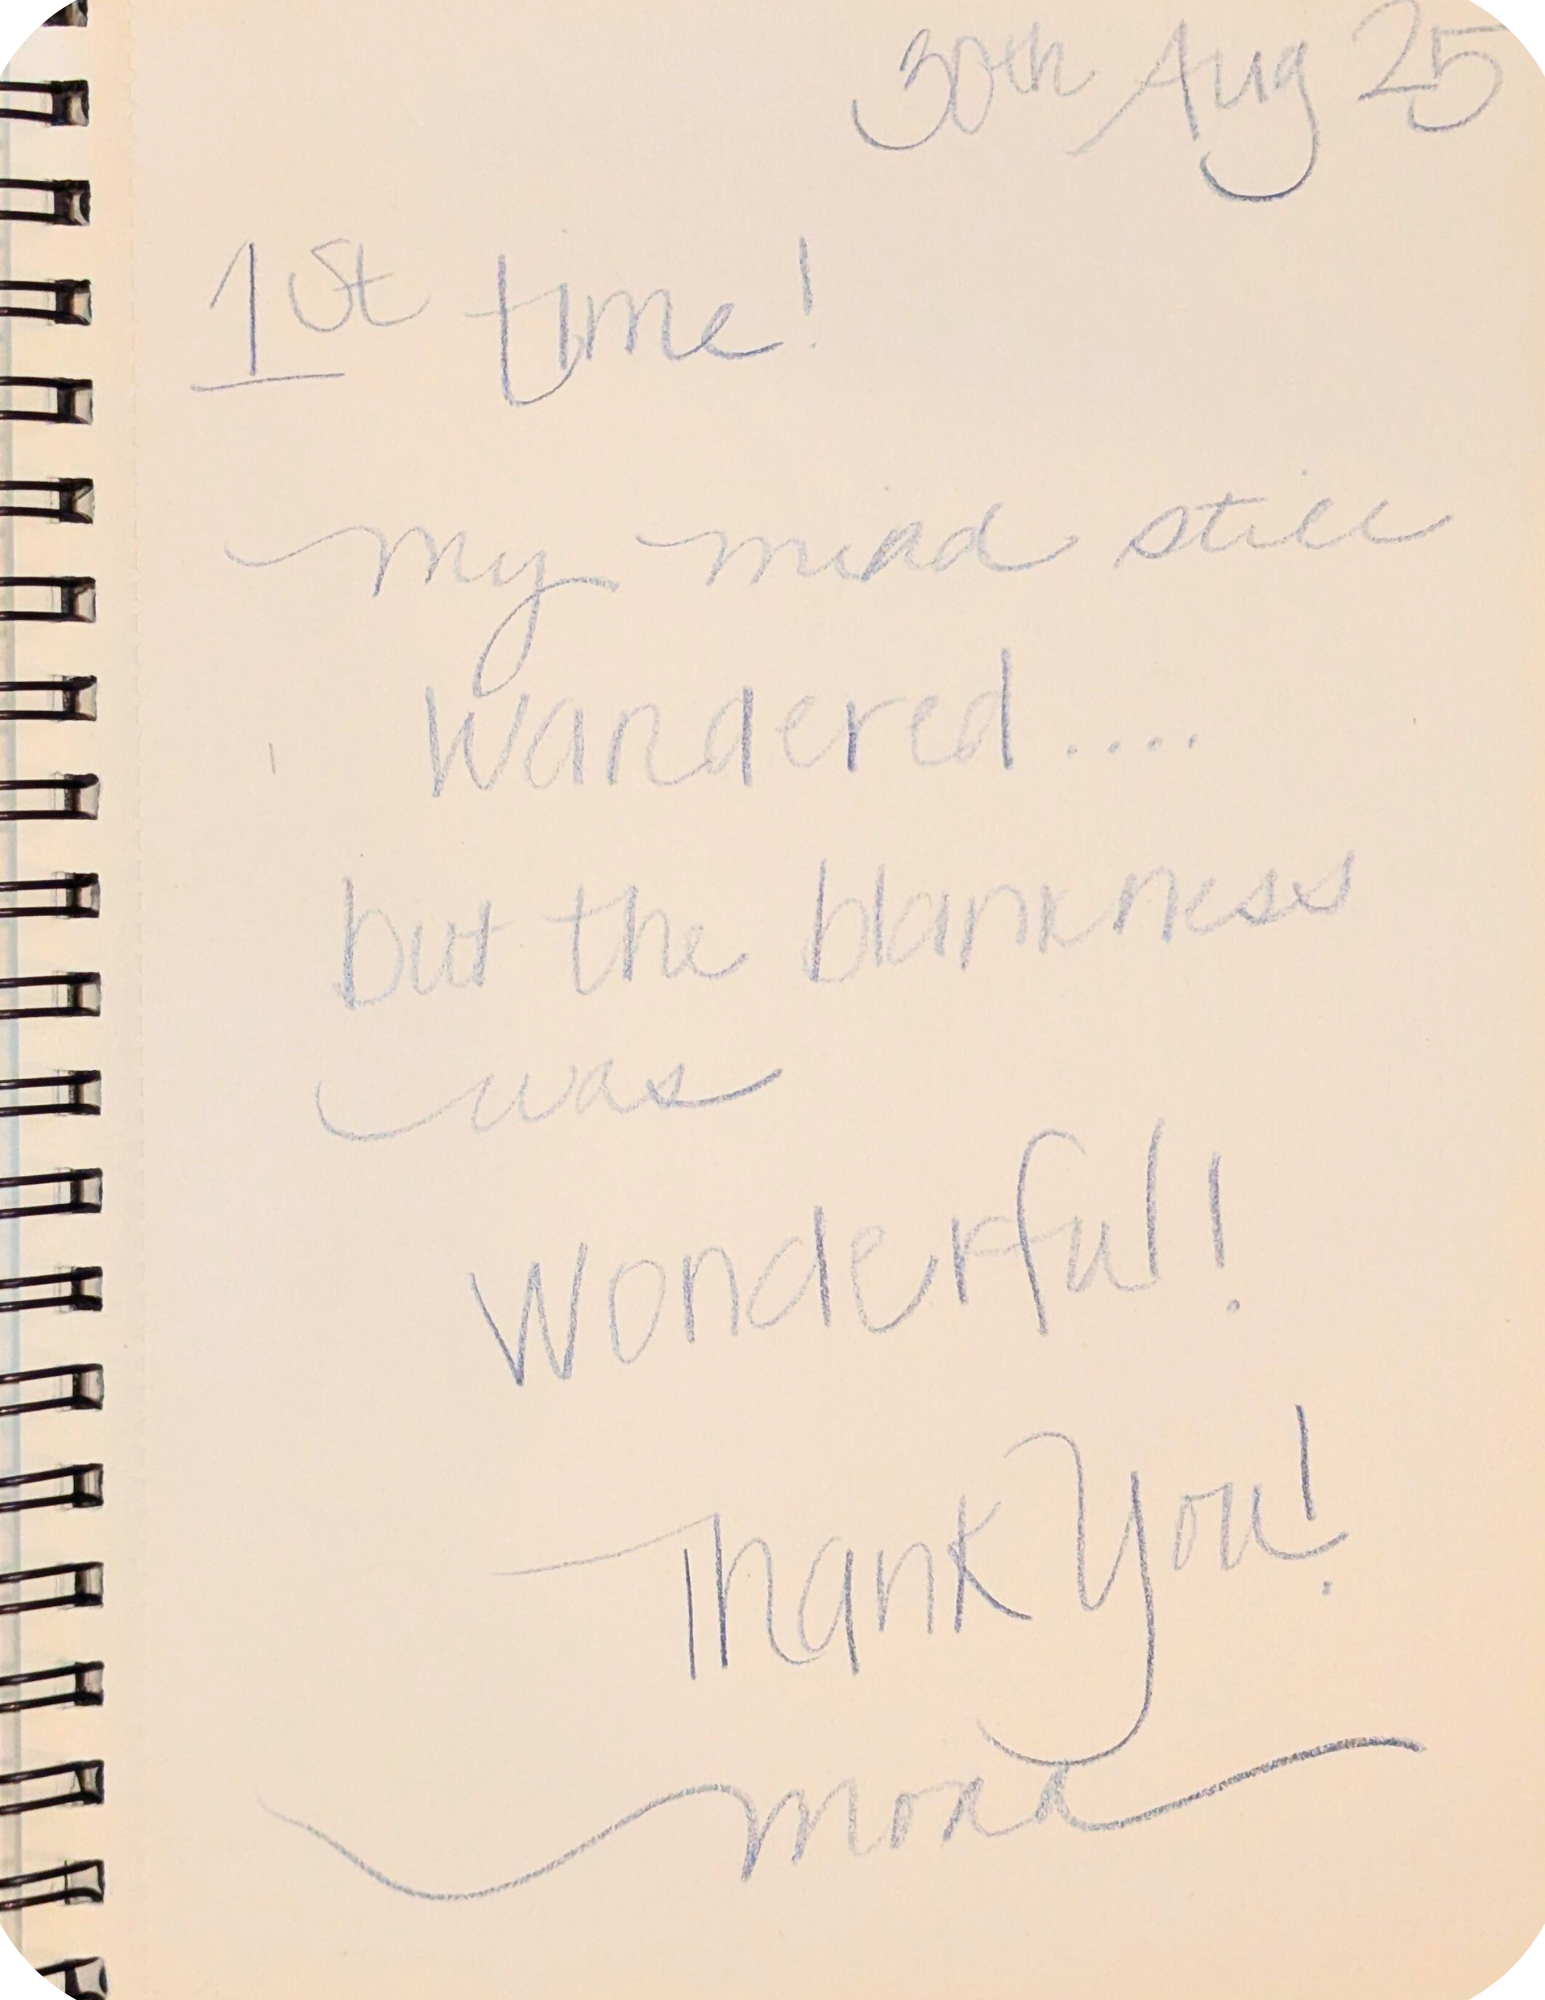 30th Aug 25
1st time!
my mind still
wandered....
but the blankness
was
wonderful!
Thank You!
Mona